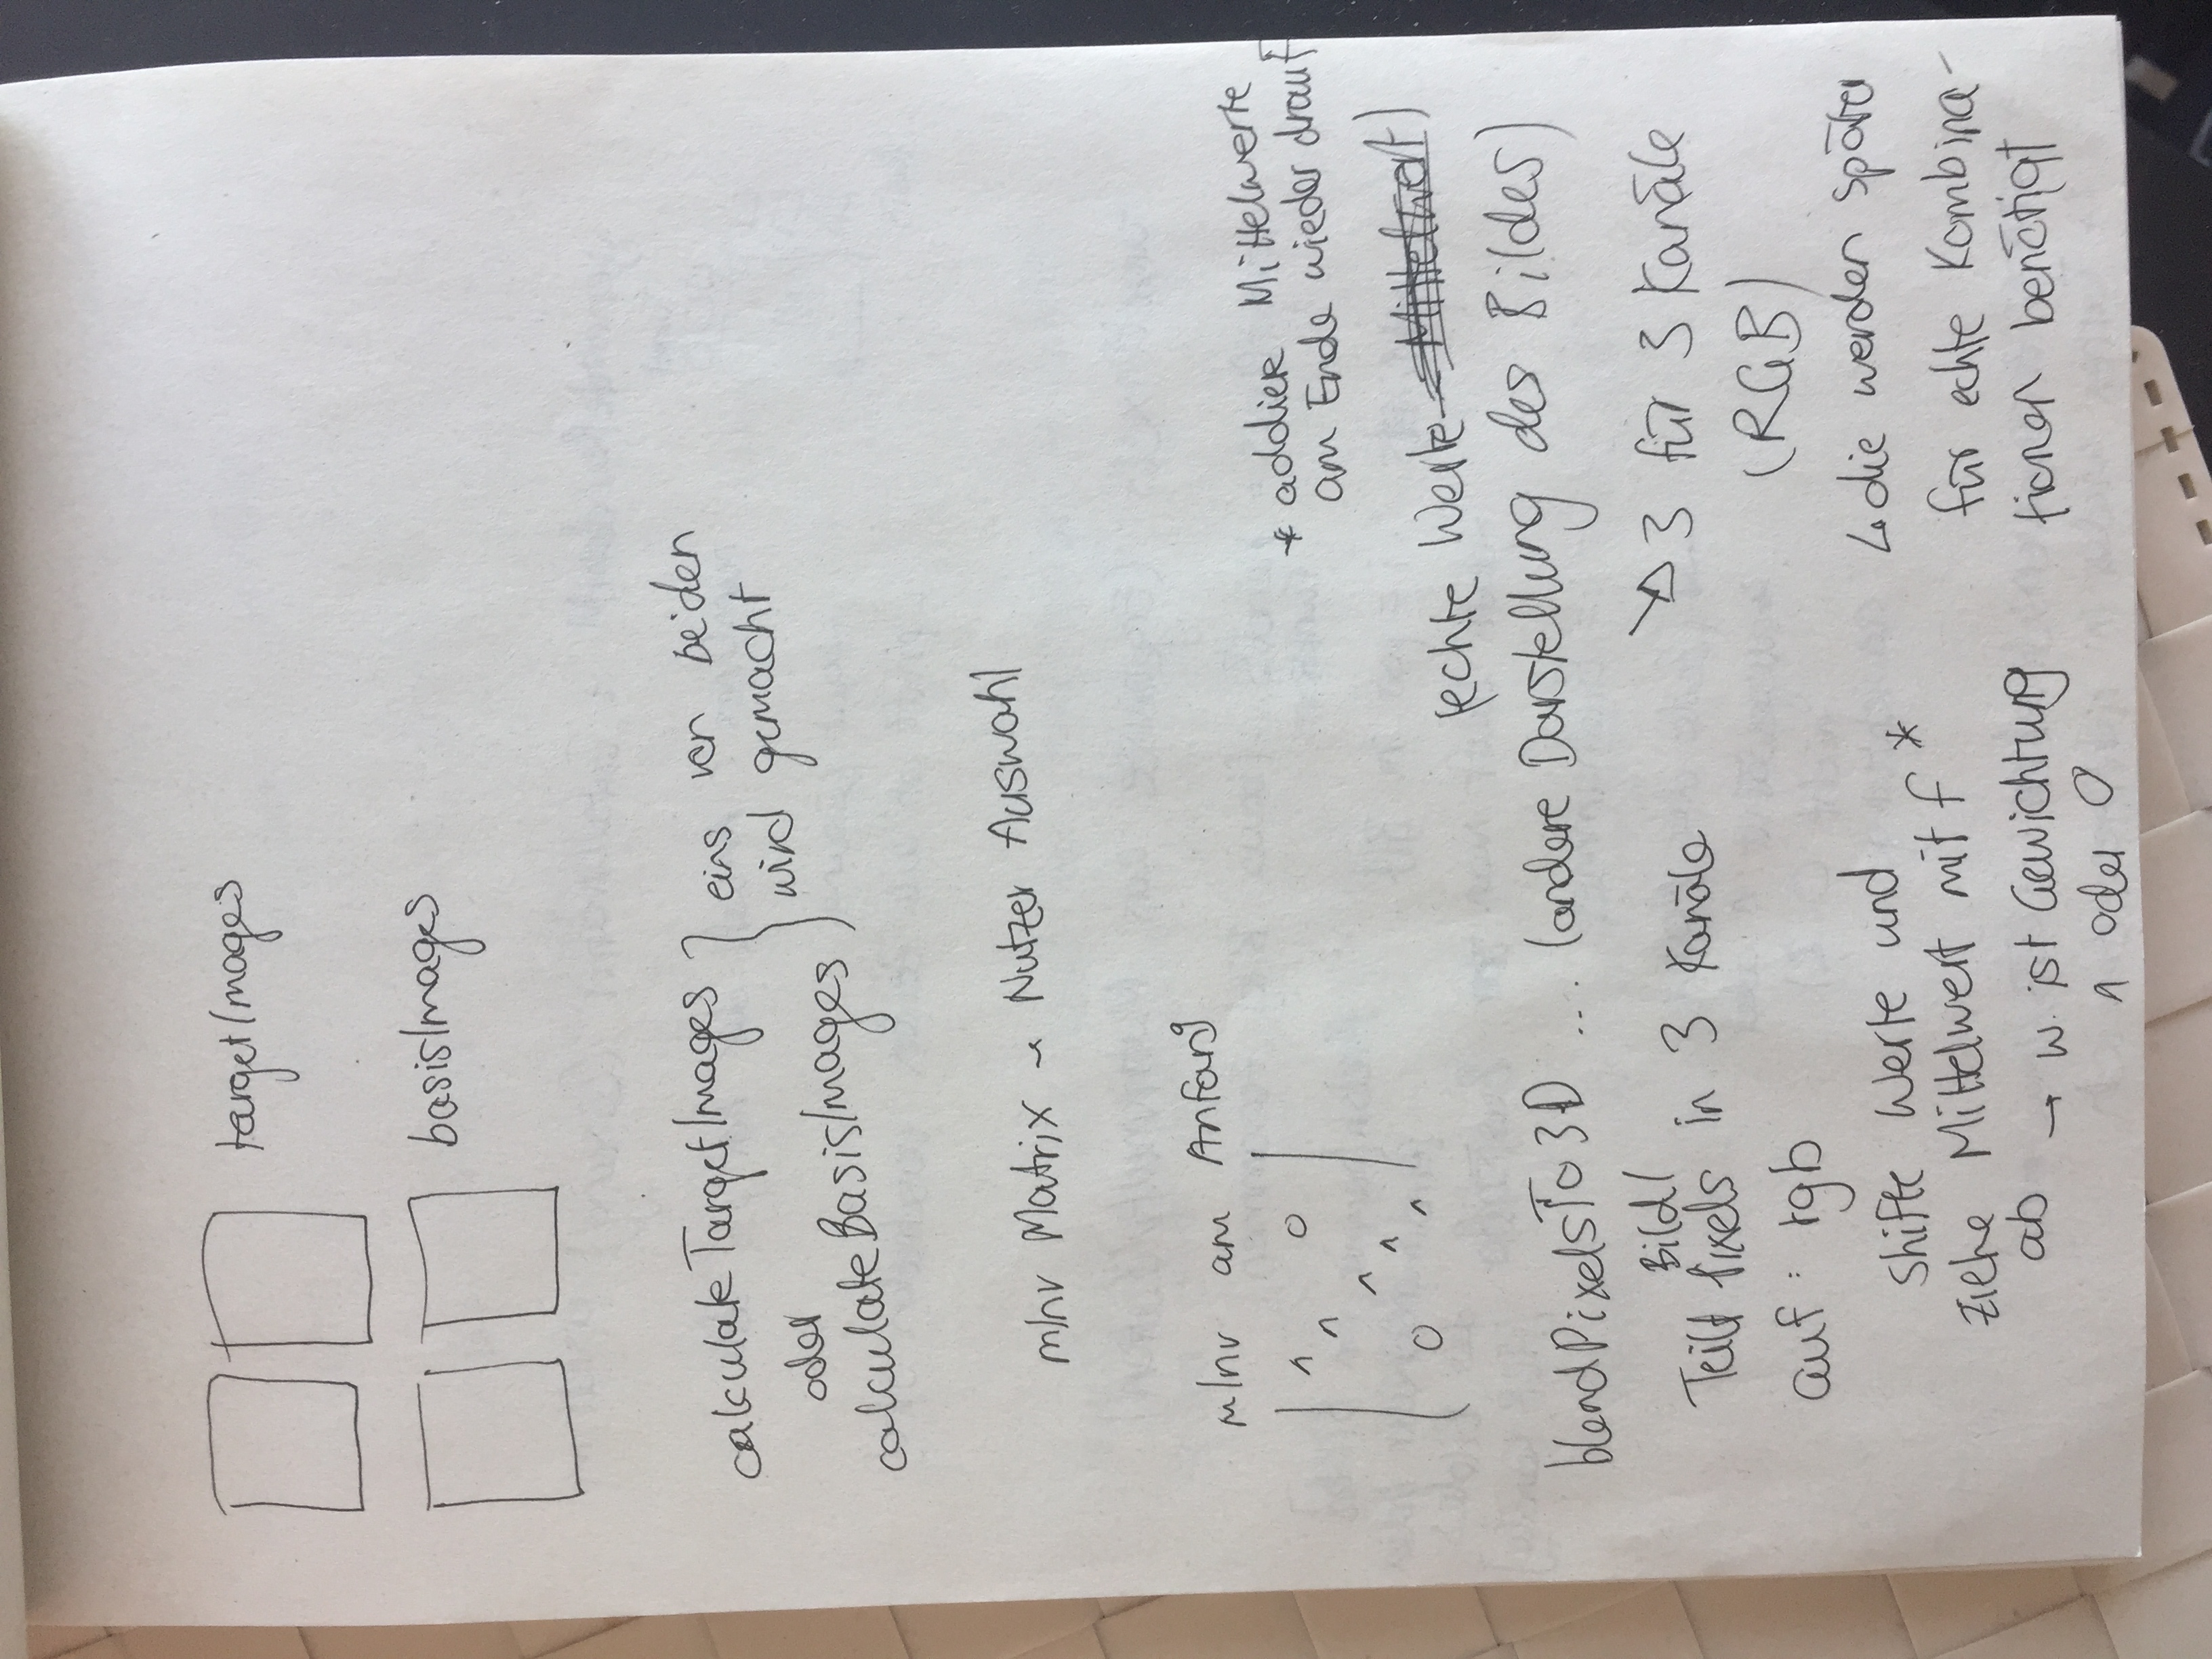 targetImages
basisImages
calculateTargetImages
oder
calculateBasisImages
eins von beiden
wird gemacht
mInv Matrix ~ Nutzer Auswahl
mInv am Anfang
1 0
1
1
1
0 1
* addiere Mittelwerte
am Ende wieder drauf
(echte Werte - Mittelwert)
blendPixelsTo3D ... (andere Darstellung des Bildes)
Bild/
Teilt Pixels in 3 Kanäle
auf : rgb
shifte Werte und
ziehe Mittelwert mit f *
ab → w. ist Gewichtung
1 oder 0
3 für 3 Kanäle
(RGB)
↳ die werden später
für echte Kombina-
tionen benötigt